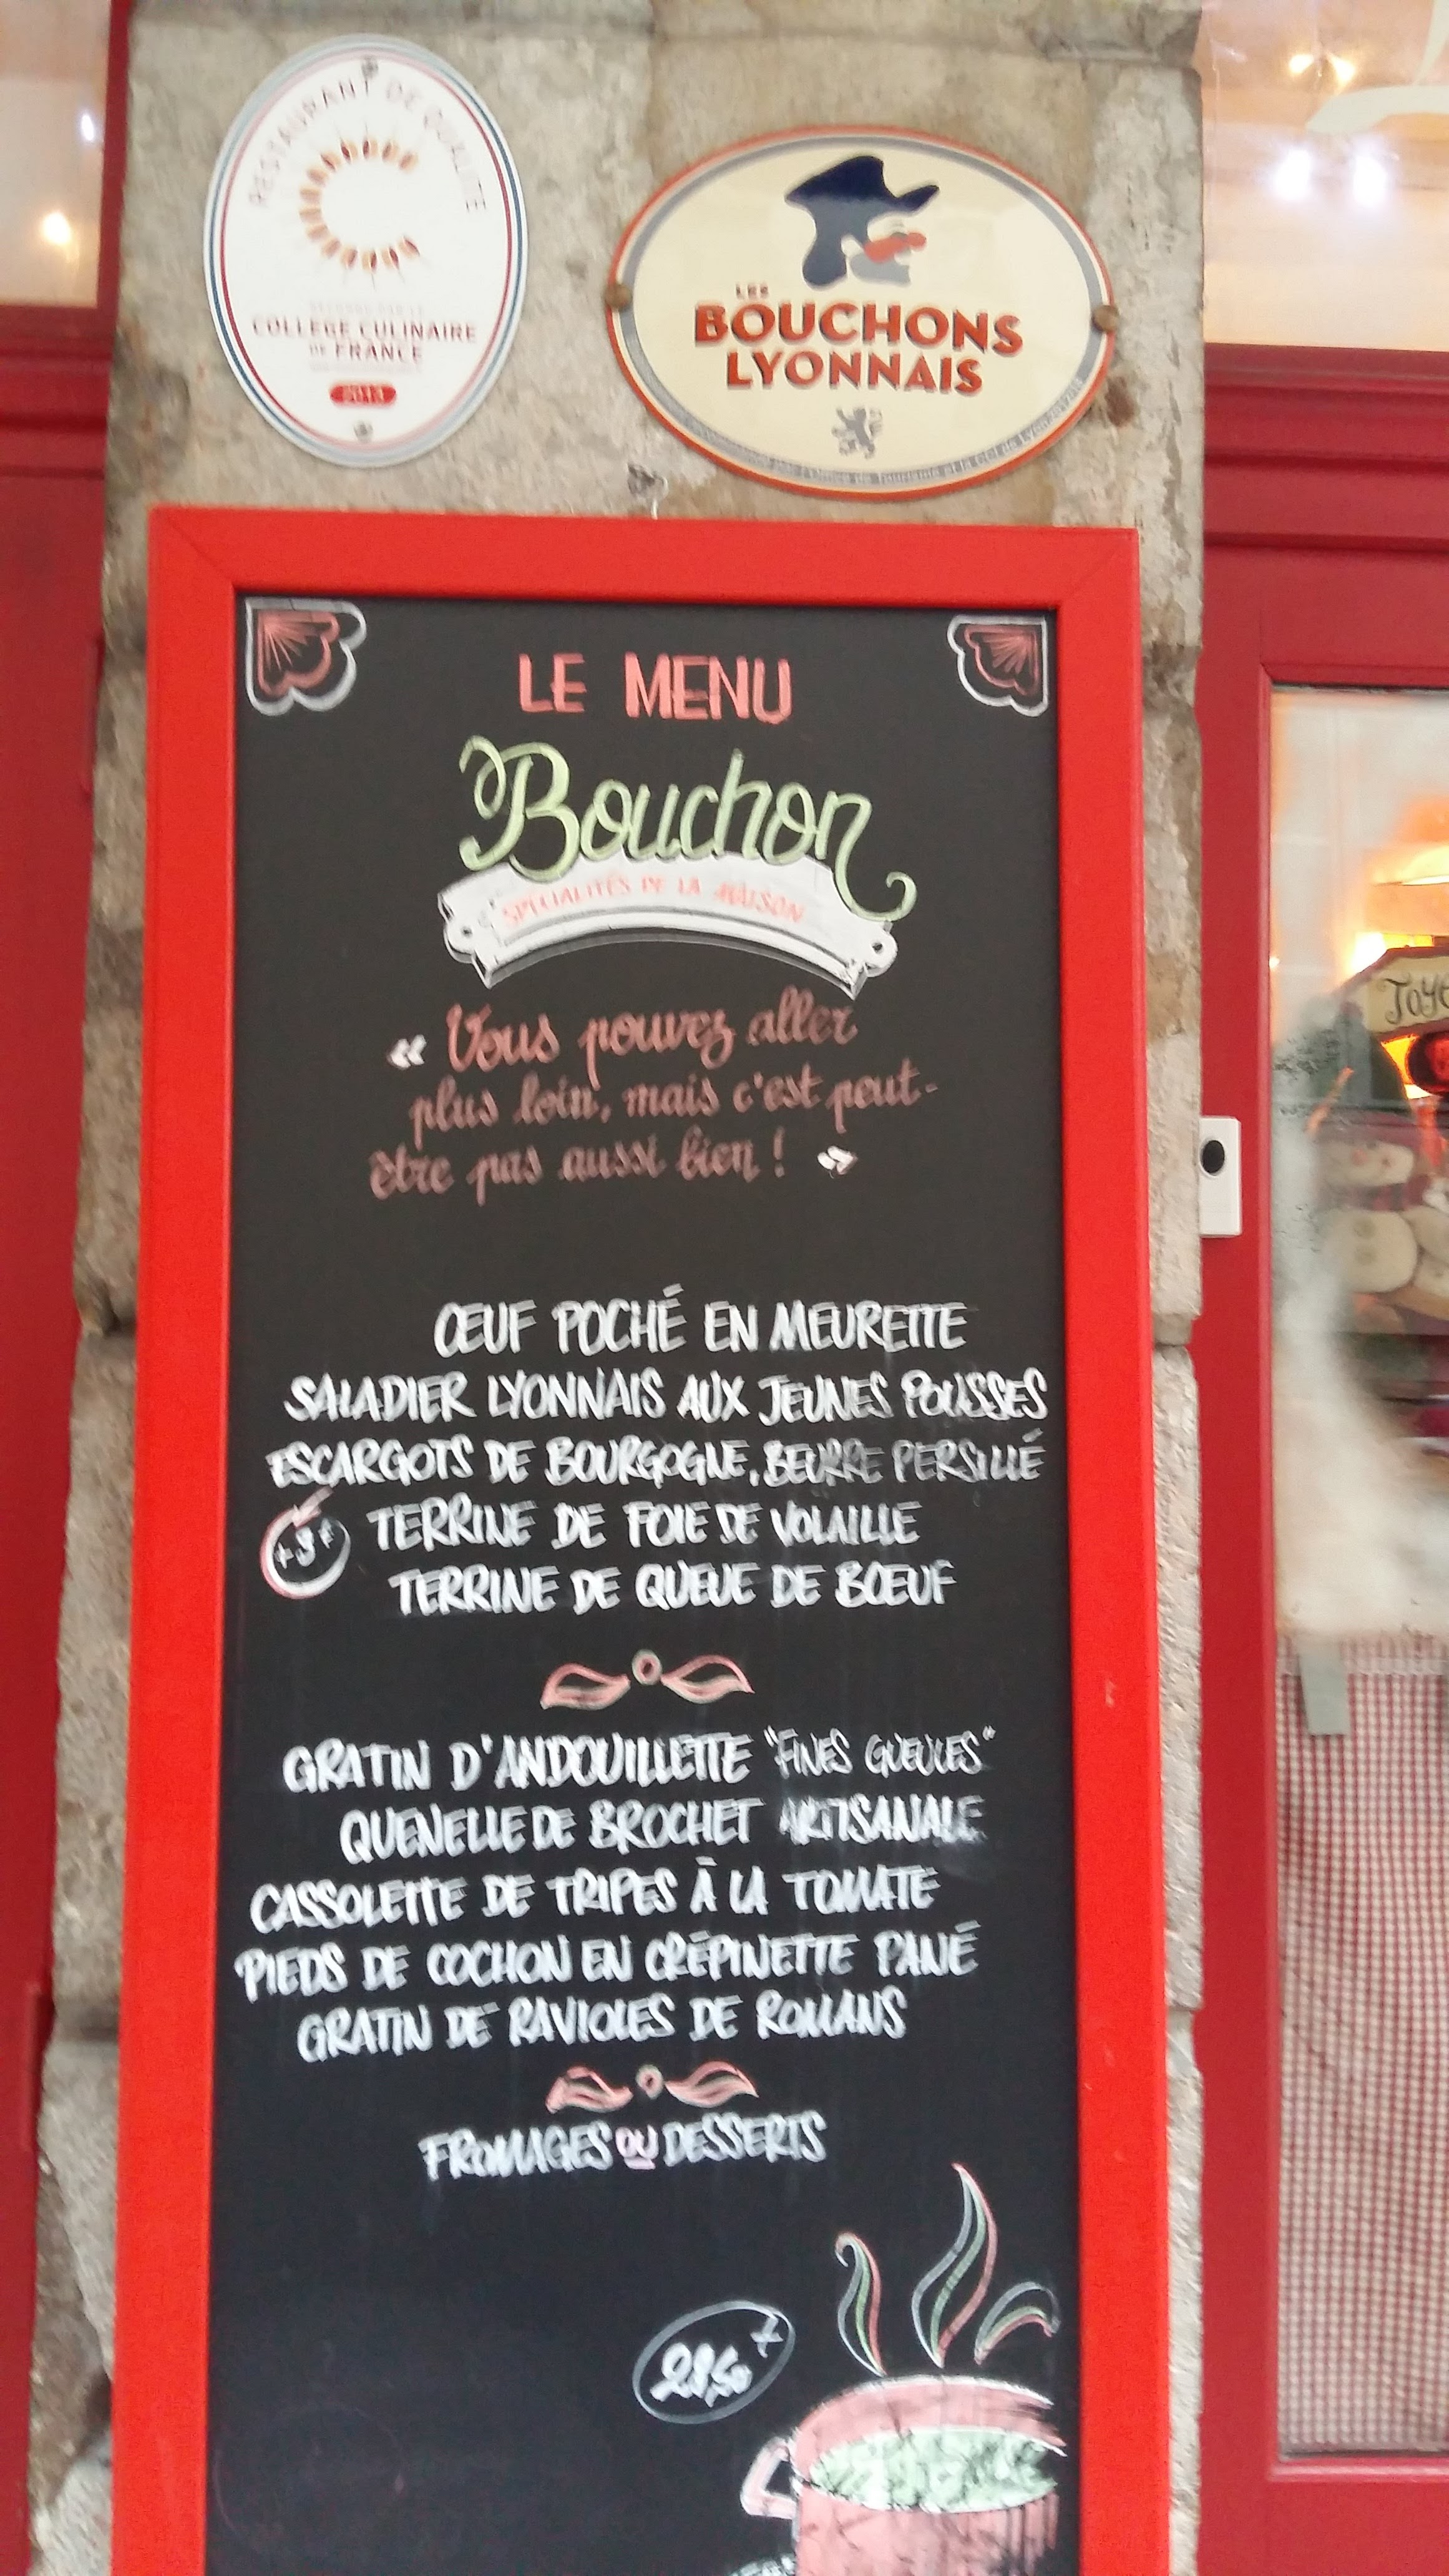 RESTAURANT DE QUALITÉ
COLLÈGE CULINAIRE
DE FRANCE
2013
LES
BOUCHONS
LYONNAIS
LE MENU
Bouchon
SPÉCIALITÉS DE LA MAISON
« Vous pouvez aller
plus loin, mais c'est peut-
être pas aussi bien ! »
ŒUF POCHÉ EN MEURETTE
SALADIER LYONNAIS AUX JEUNES POUSSES
ESCARGOTS DE BOURGOGNE, BEURRE PERSILLÉ
+3€ TERRINE DE FOIE DE VOLAILLE
TERRINE DE QUEUE DE BŒUF
GRATIN D'ANDOUILLETTE "FINES GUEULES"
QUENELLE DE BROCHET ARTISANALE
CASSOLETTE DE TRIPES À LA TOMATE
PIEDS DE COCHON EN CRÉPINETTE PANÉ
GRATIN DE RAVIOLES DE ROMANS
FROMAGES OU DESSERTS
28,50